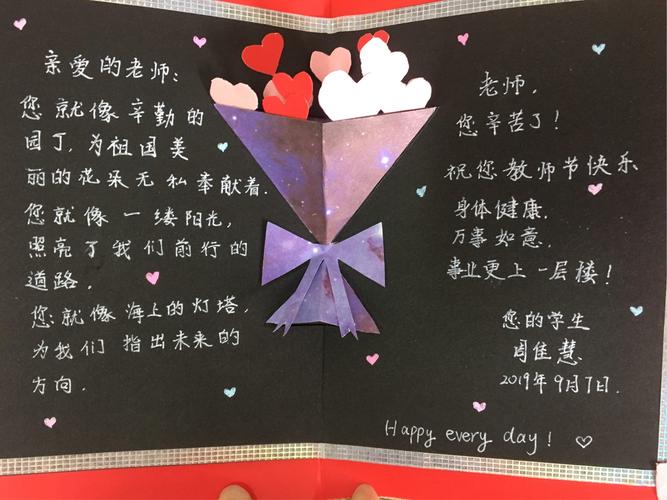 亲爱的老师:
您就像辛勤的
园丁,为祖国美
丽的花朵无私奉献着.
您就像一缕阳光,
照亮了我们前行的
道路.
您就像海上的灯塔,
为我们指出未来的
方向.
老师,
您辛苦了!
祝您教师节快乐
身体健康.
万事如意.
事业更上一层楼!
您的学生
周佳慧
2019年9月7日.
Happy every day! ♡